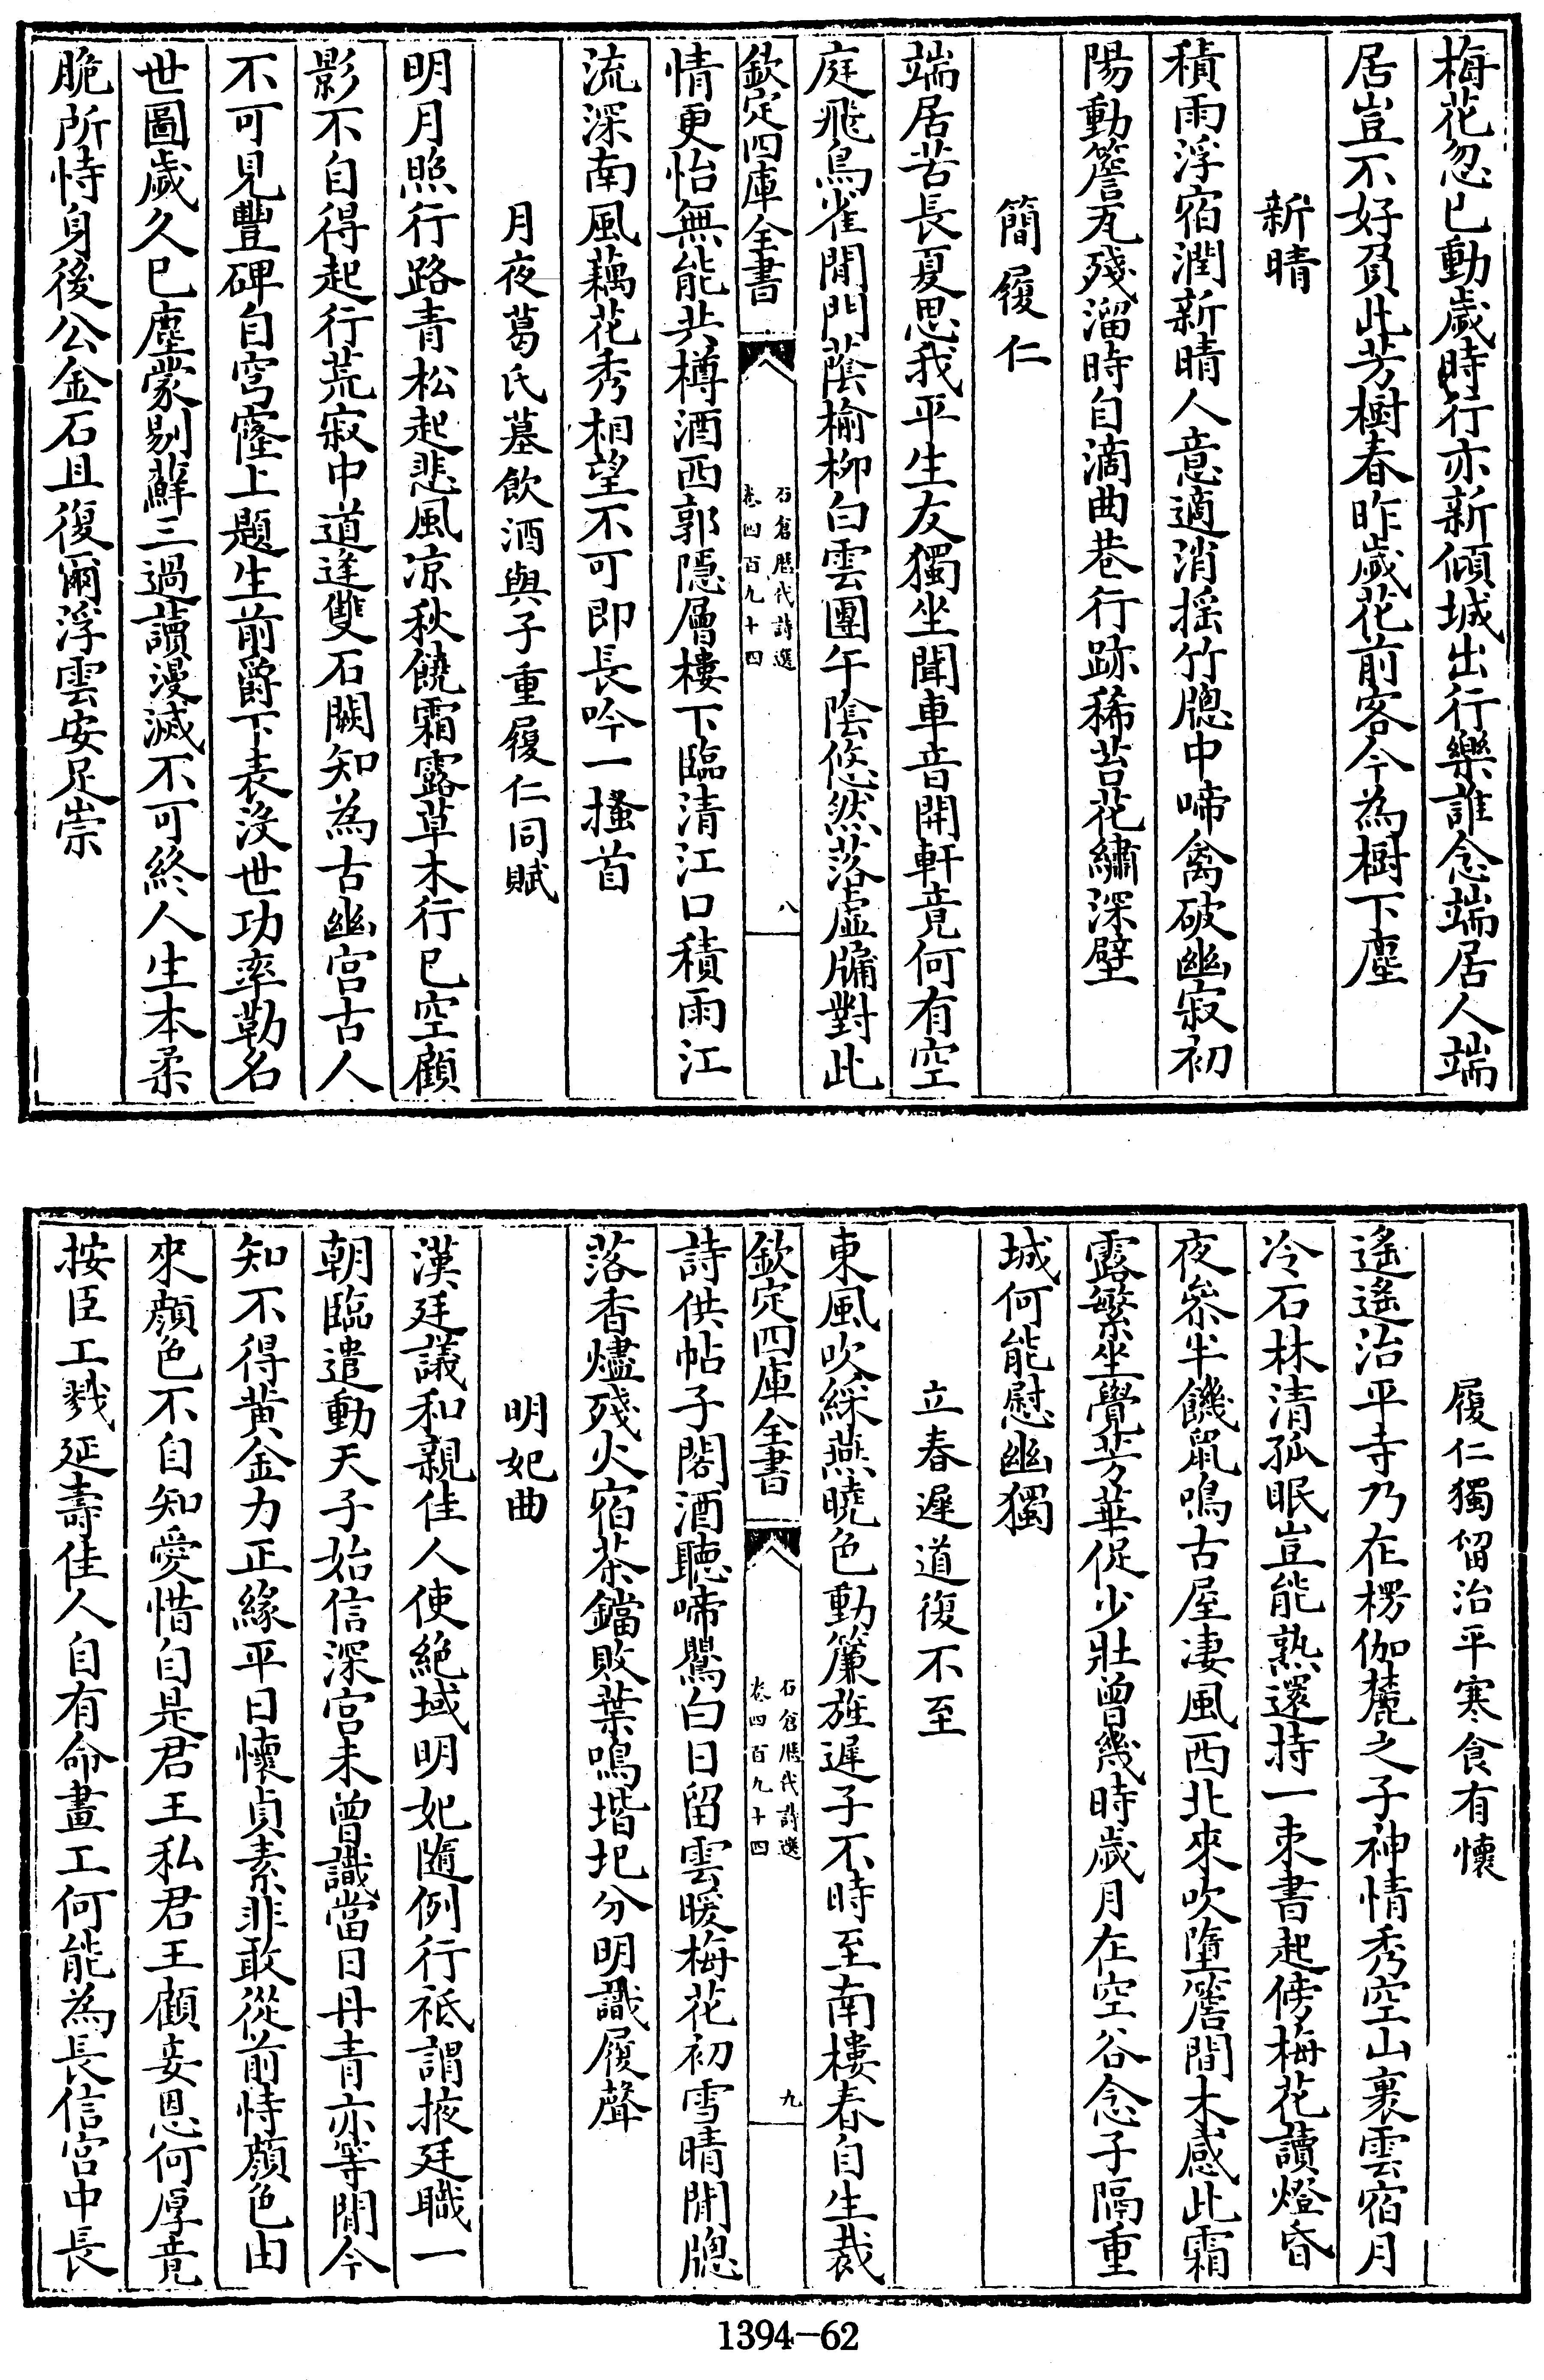 梅花忽已動歲時行亦新傾城出行樂誰念端居人端
居豈不好負此芳樹春昨歲花前客今為樹下塵
新晴
積雨浮宿潤新晴人意適消摇竹牕中啼禽破幽寂初
陽動簷瓦殘溜時自滴曲巷行跡稀苔花繡深壁
簡履仁
端居苦長夏思我平生友獨坐聞車音開軒竟何有空
庭飛鳥雀閒門蔭榆柳白雲團午陰悠然落虛牖對此
欽定四庫全書
石倉歷代詩選
卷四百九十四
八
情更怡無能共樽酒西郭隱層樓下臨清江口積雨江
流深南風藕花秀相望不可即長吟一搔首
月夜葛氏墓飲酒與子重履仁同賦
明月照行路青松起悲風凉秋饒霜露草木行已空顧
影不自得起行荒寂中道逢雙石闕知為古幽宫古人
不可見豐碑自穹窿上題生前爵下表没世功率勒名
世圖歲久已塵蒙剔蘚三過讀漫滅不可終人生本柔
脆所恃身後公金石且復爾浮雲安足崇
履仁獨留治平寒食有懷
遙遙治平寺乃在楞伽麓之子神情秀空山裏雲宿月
冷石林清孤眠豈能熟還持一束書起傍梅花讀燈昏
夜叅半饑鼠鳴古屋凄風西北來吹墮簷間木感此霜
露繁坐覺芳華促少壯曾幾時歲月在空谷念子隔重
城何能慰幽獨
立春遲道復不至
東風吹綵燕曉色動簾旌遲子不時至南樓春自生裁
欽定四庫全書
石倉歷代詩選
卷四百九十四
九
詩供帖子閣酒聽啼鸎白日留雲暖梅花初雪晴閒牕
落香燼殘火宿茶鐺敗葉鳴堦圯分明識履聲
明妃曲
漢廷議和親佳人使絶域明妃隨例行祇謂掖廷職一
朝臨遣動天子始信深宫未曾識當日丹青亦等閒今
知不得黄金力正緣平日懷貞素非敢從前恃顔色由
來顔色不自知愛惜自是君王私君王顧妾恩何厚竟
按臣工戮延壽佳人自有命畫工何能為長信宫中長
1394-62